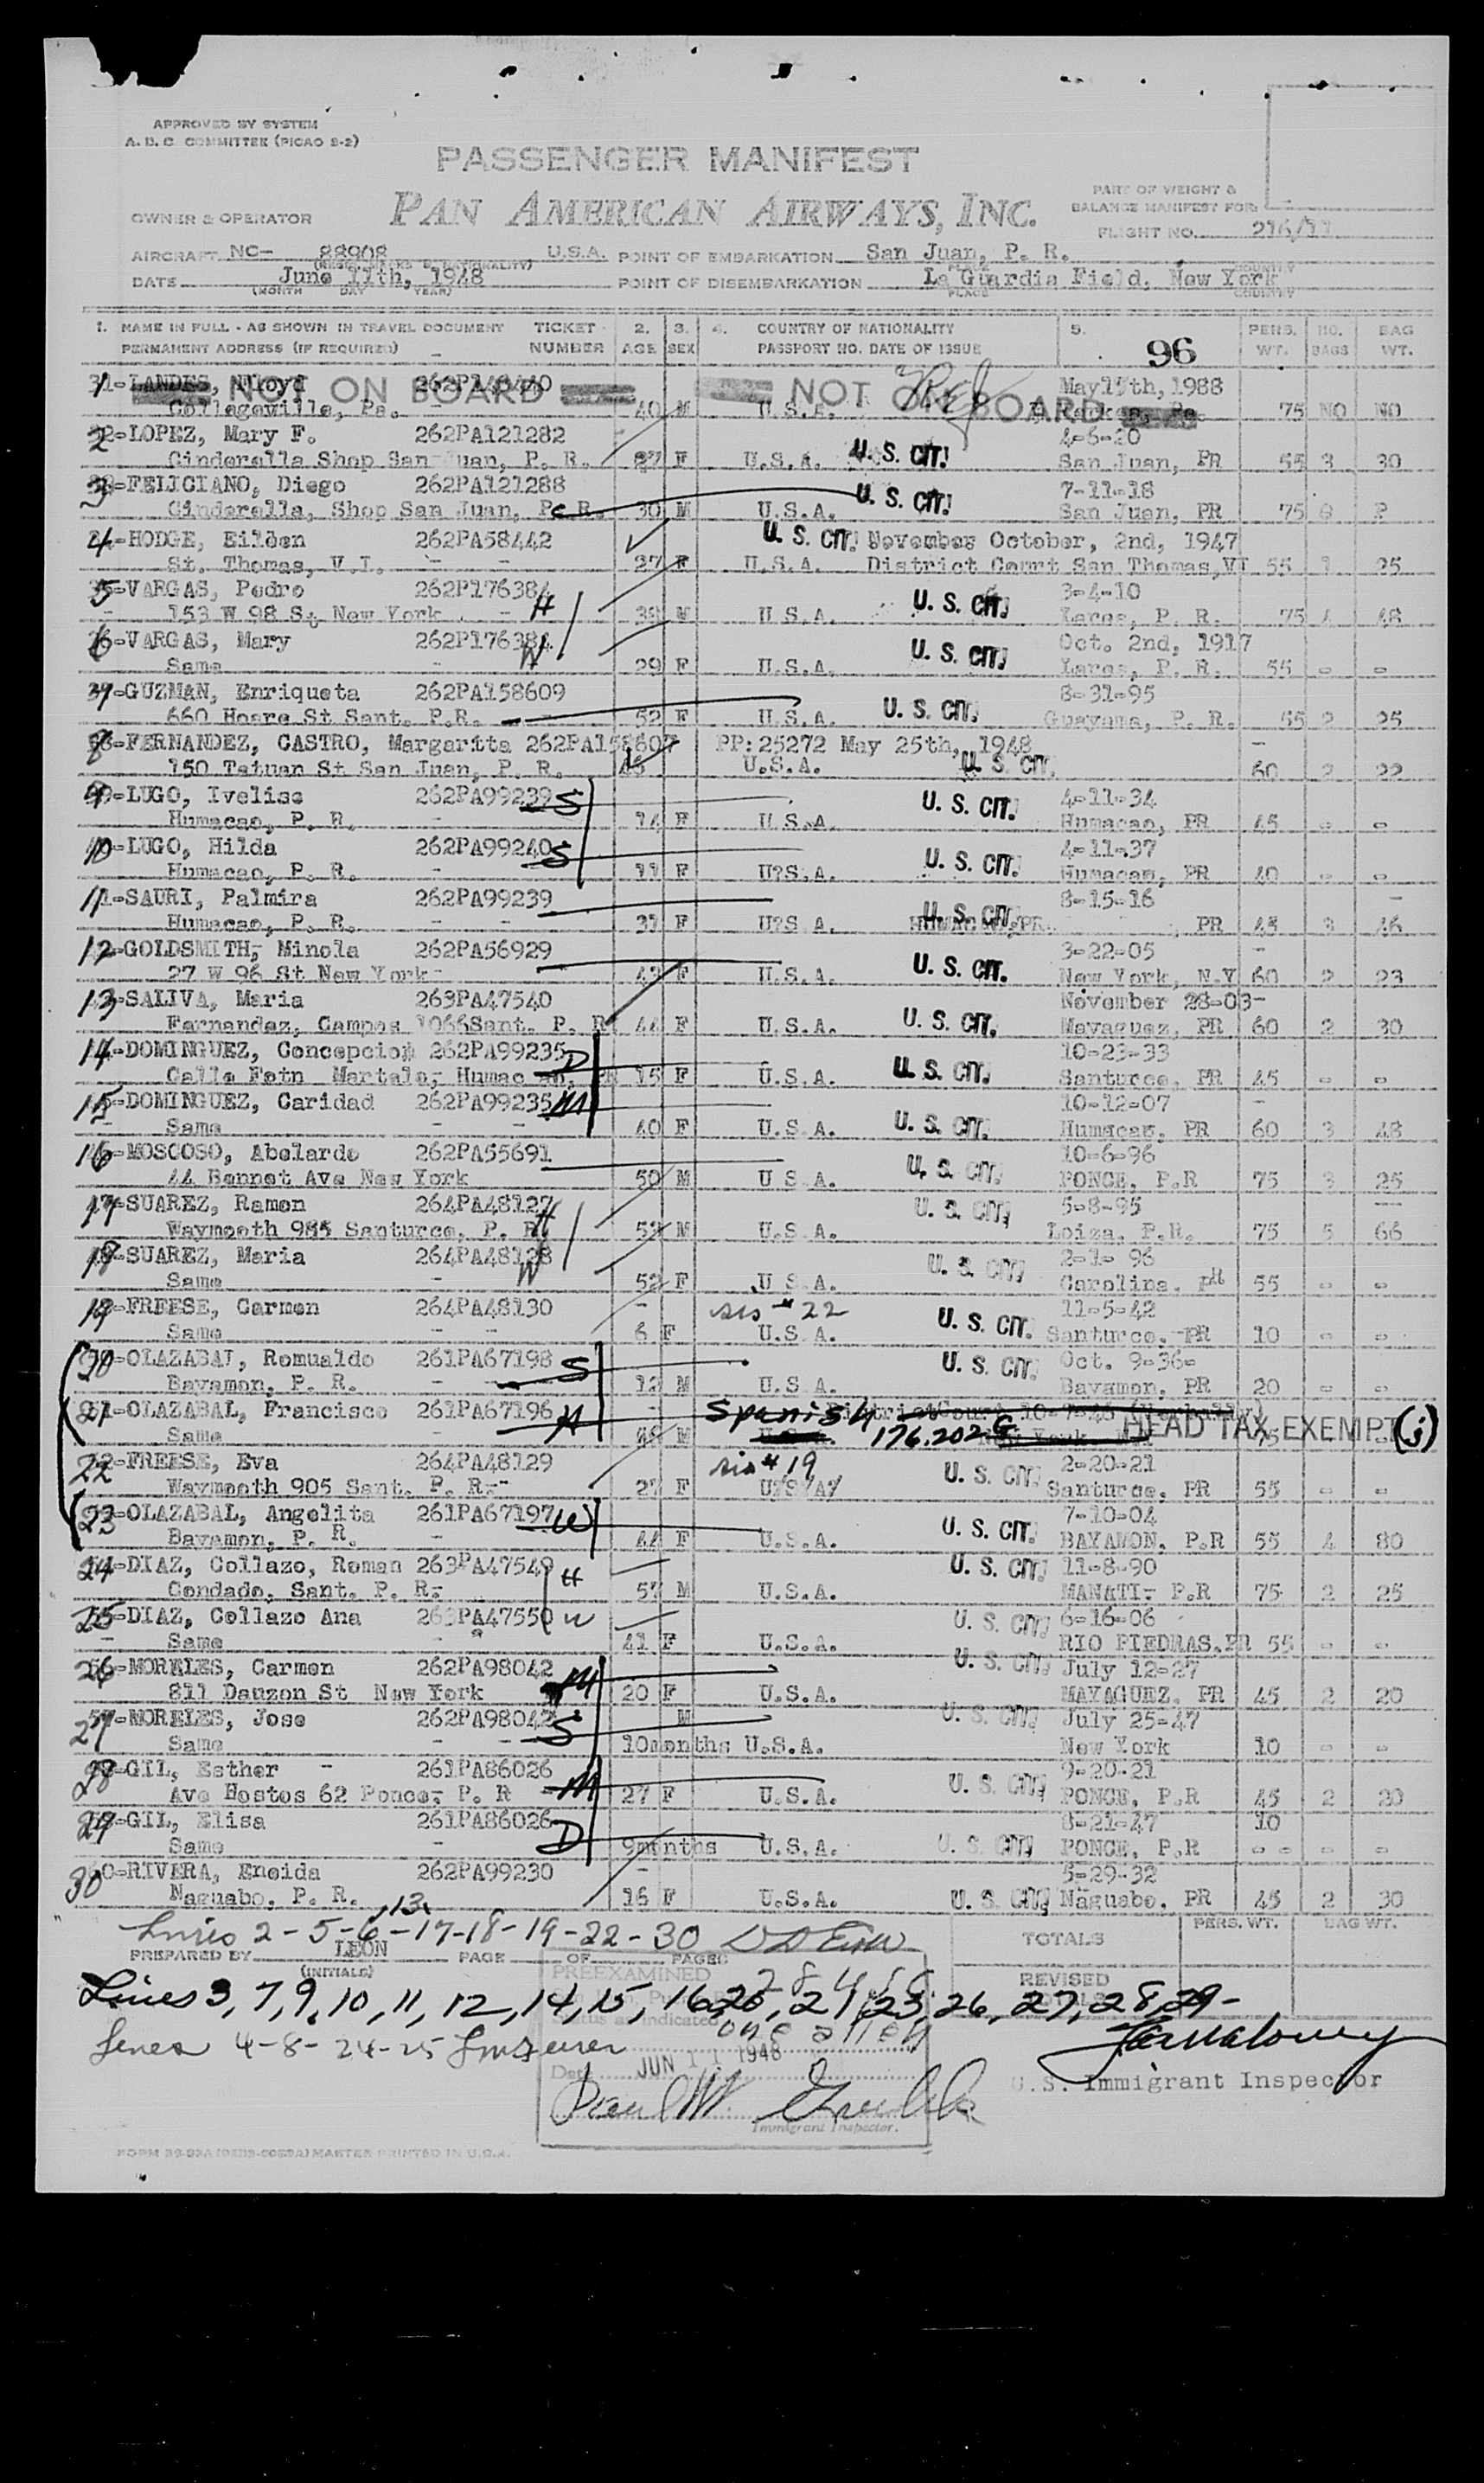 APPROVED BY SYSTEM
A. D. C. COMMITTEE (PICAO S-2)
PASSENGER MANIFEST
PAN AMERICAN AIRWAYS, INC.
PART OF WEIGHT &
BALANCE MANIFEST FOR
OWNER & OPERATOR
FLIGHT NO. 216/11
AIRCRAFT NC- 88908 U.S.A. POINT OF EMBARKATION San Juan, P. R.
DATE June 11th, 1948 POINT OF DISEMBARKATION La Guardia Field, New York
(MONTH DAY YEAR) PLACE COUNTRY
1. NAME IN FULL - AS SHOWN IN TRAVEL DOCUMENT TICKET 2. 3. 4. COUNTRY OF NATIONALITY 5. PERS. NO. BAG
PERMANENT ADDRESS (IF REQUIRED) NUMBER AGE SEX PASSPORT NO. DATE OF ISSUE 96 WT. BAGS WT.
1 LANDES, Lloyd NOT ON BOARD NOT BOARD
Collegeville, Pa. 40 M U.S.A. 75 NO NO
2-LOPEZ, Mary F. 262PA121282 4-6-20
Cinderella Shop San Juan, P. R. 27 F U.S.A. U. S. CIT. San Juan, PR 55 3 30
3-FELICIANO, Diego 262PA121288 U. S. CIT. 7-11-18
Cinderella, Shop San Juan, P. R. 30 M U.S.A. San Juan, PR 75
4-HODGE, Eilden 262PA58442 U. S. CIT. November October, 2nd, 1947
St. Thomas, V.I. - - 27 F U.S.A. District Court San Thomas, VI 55 1 25
5-VARGAS, Pedro 262P176384 H U. S. CIT. 3-4-10
153 W 98 St New York - 38 M U.S.A. Lares, P. R. 75 4 48
6-VARGAS, Mary 262P176384 W U. S. CIT. Oct. 2nd, 1917
Same - 29 F U.S.A. Lares, P. R. 55 - -
7-GUZMAN, Enriqueta 262PA158609 8-31-95
660 Hoare St Sant. P.R. 52 F U.S.A. U. S. CIT. Guayama, P. R. 55 2 25
8-FERNANDEZ, CASTRO, Margarita 262PA158607 PP: 25272 May 25th, 1948 -
150 Tetuan St San Juan, P. R. U.S.A. U. S. CIT. 60 2 22
9-LUGO, Ivelise 262PA99239 S U. S. CIT. 4-11-34
Humacao, P. R. - 14 F U.S.A. Humacao, PR 45 - -
10-LUGO, Hilda 262PA99240 S U. S. CIT. 4-11-37
Humacao, P. R. - 11 F U?S.A. Humacao, PR 40 - -
11-SAURI, Palmira 262PA99239 U. S. CIT. 8-15-16
Humacao, P. R. - - 31 F U?S A. PR 45 3 46
12-GOLDSMITH, Minola 262PA56929 3-22-05
27 W 96 St New York- 43 F U.S.A. U. S. CIT. New York, N.Y 60 2 23
13-SALIVA, Maria 263PA47540 November 28-03-
Fernandez, Campos 1066Sant. P. R. 44 F U.S.A. U. S. CIT. Mayaguez, PR 60 2 30
14-DOMINGUEZ, Concepcion 262PA99235 D 10-23-33
Calle Fotn Martelo, Humac ao, PR 15 F U.S.A. U. S. CIT. Santurce, PR 45 - -
15-DOMINGUEZ, Caridad 262PA99235 M 10-12-07
Same 40 F U.S.A. U. S. CIT. Humacao, PR 60 3 48
16-MOSCOSO, Abelardo 262PA55691 10-6-96
44 Bennet Ave New York 50 M U S A. U. S. CIT. PONCE, P.R 75 3 25
17-SUAREZ, Ramon 264PA48127 H U. S. CIT. 5-8-95
Waymooth 985 Santurce, P. R. 53 M U.S.A. Loiza. P.R. 75 5 66
18-SUAREZ, Maria 264PA48128 W U. S. CIT. 2-1- 96
Same - 52 F U S A. Carolina. PR 55 - -
19-FREESE, Carmen 264PA48130 - sis # 22 11-5-42
Same - - 6 F U.S A. U. S. CIT. Santurce. PR 10 - -
20-OLAZABAL, Romualdo 261PA67198 S U. S. CIT. Oct. 9-36-
Bayamon, P. R. 12 M U.S A. Bayamon, PR 20 - -
21-OLAZABAL, Francisco 261PA67196 H Spanish HEAD TAX EXEMPT (j)
Same M 176.202 G
22-FREESE, Eva 264PA48129 sis # 19 2-20-21
Waymooth 905 Sant. P. R.- 27 F U?S A U. S. CIT. Santurce. PR 55 - -
23-OLAZABAL, Angelita 261PA67197 W 7-10-04
Bayamon, P. R. - 44 F U.S.A. U. S. CIT. BAYAMON, P.R 55 4 80
24-DIAZ, Collazo, Roman 263PA47549 H U. S. CIT. 11-8-90
Condado, Sant. P. R. 57 M U.S.A. MANATI- P.R 75 2 25
25-DIAZ, Collazo Ana 263PA47550 W U. S. CIT. 6-16-06
Same 41 F U.S.A. RIO PIEDRAS.PR 55 - -
26-MORALES, Carmen 262PA98042 M U. S. CIT. July 12-27
811 Dauzon St New York 20 F U.S.A. MAYAGUEZ. PR 45 2 20
27-MORELES, Jose 262PA98042 S M U. S. CIT. July 25-47
Same - 10months U.S.A. New York 10 - -
28-GIL, Esther - 261PA86026 M 9-20-21
Ave Hostos 62 Ponce- P. R 27 F U.S.A. U. S. CIT. PONCE, P.R 45 2 20
29-GIL, Elisa 261PA86026 D 8-21-47 10
Same - 9months U.S.A. U. S. CIT. PONCE, P.R - - - -
30-RIVERA, Eneida 262PA99230 - 5-29-32
Naguabo, P. R. 16 F U.S.A. U. S. CIT. Naguabo, PR 45 2 30
Lines 2-5-6-13-17-18-19-22-30
PREPARED BY LEON PAGE OF PAGES TOTALS PERS. WT. BAG WT.
(INITIALS) PREEXAMINED REVISED
Lines 3, 7, 9, 10, 11, 12, 14, 15, 16, 20, 21, 23, 26, 27, 28, 29-
Status as indicated one alien
Lines 4-8-24-25
Date JUN 11 1948
U.S. Immigrant Inspector
Immigrant Inspector.